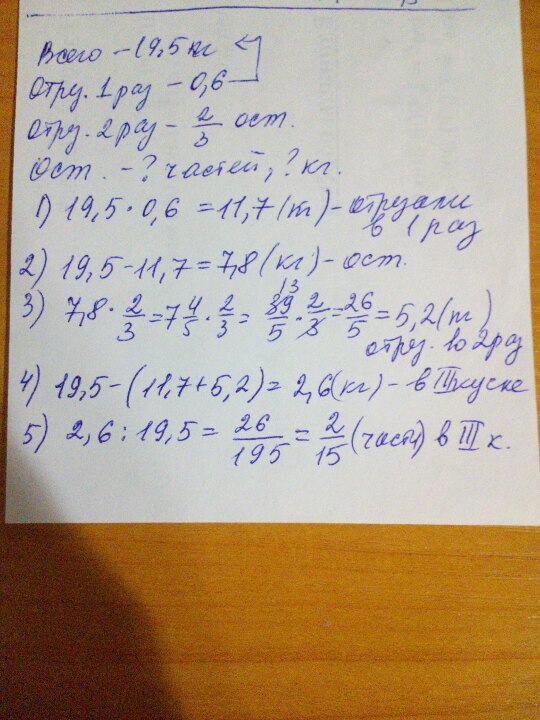 Всего – 19,5 кг
Отру. 1 раз – 0,6
Отру. 2 раз – 2/3 ост.
Ост. – ? частей, ? кг.
1) 19,5 · 0,6 = 11,7 (т) – отрезали
в 1 раз
2) 19,5 – 11,7 = 7,8 (кг) – ост.
3) 7,8 · 2/3 = 7 4/5 · 2/3 = 39/5 · 2/3 = 26/5 = 5,2 (т)
13
отру. во 2 раз
4) 19,5 – (11,7 + 5,2) = 2,6 (кг) – в III куске
5) 2,6 : 19,5 = 26/195 = 2/15 (части) в III к.